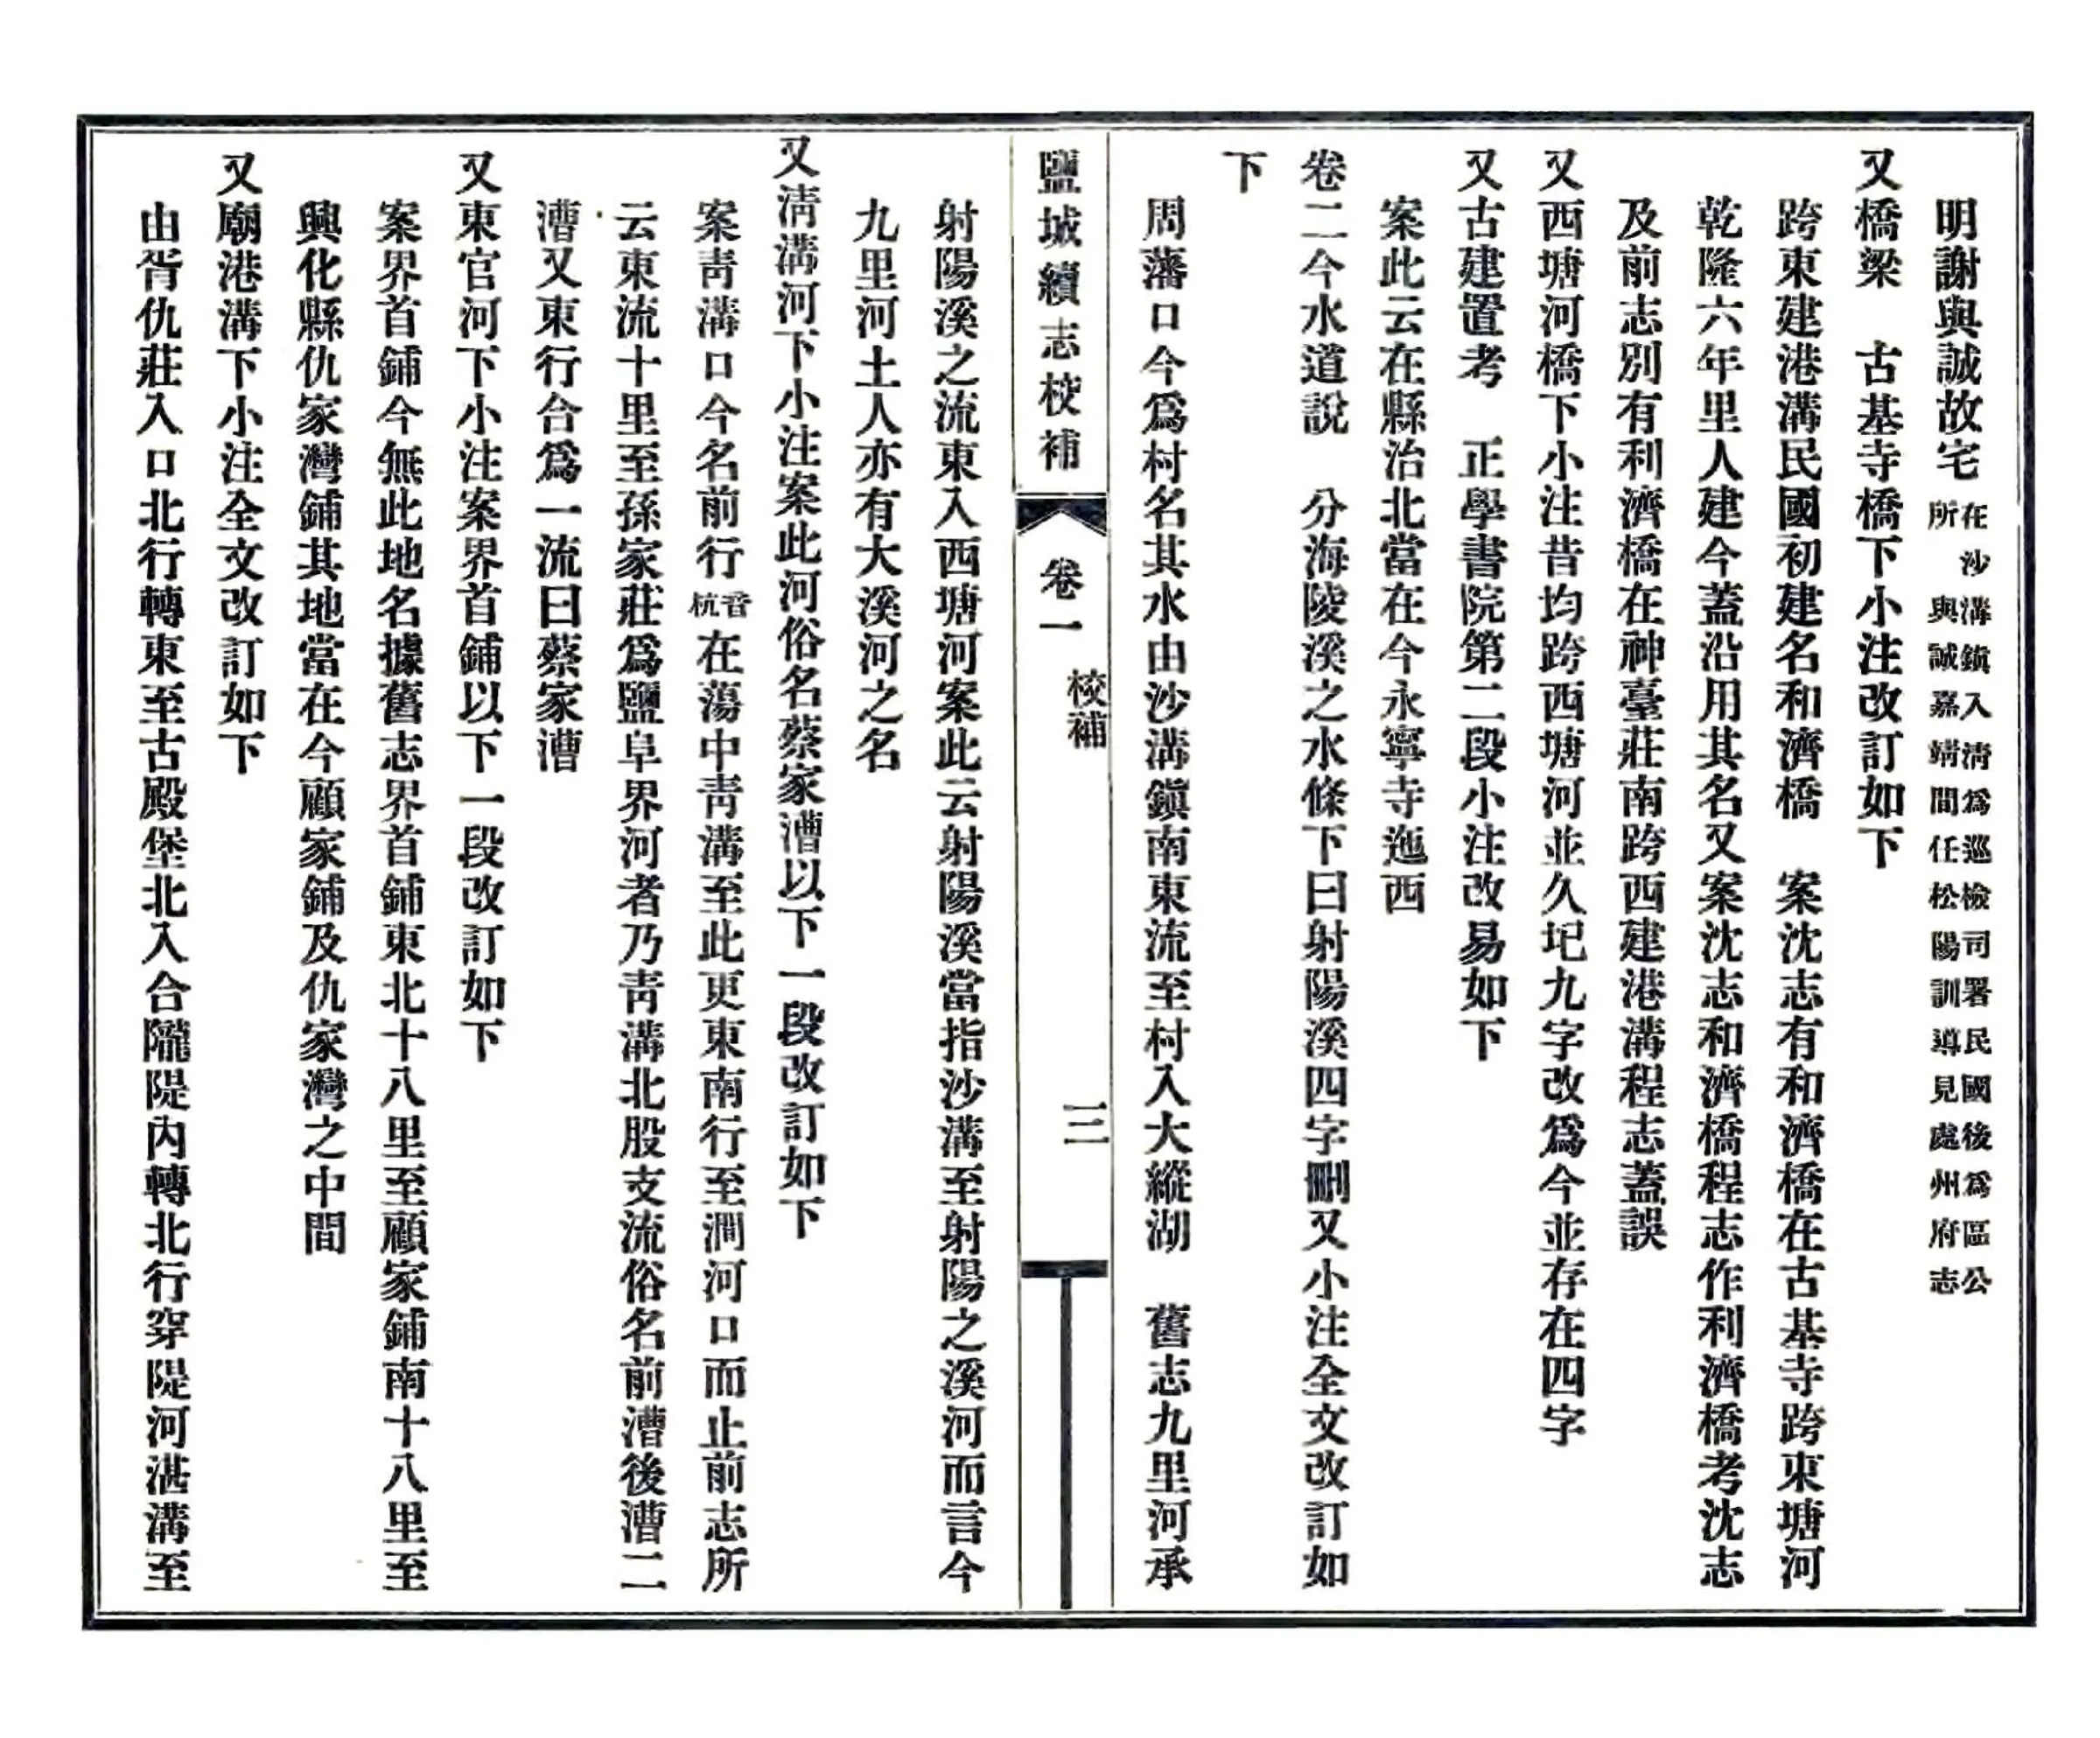 明謝與誠故宅在沙溝鎮入清爲巡檢司署民國後爲區公所　與誠嘉靖間任松陽訓導見處州府志
又橋梁　古基寺橋下小注改訂如下
跨東建港溝民國初建名和濟橋　案沈志有和濟橋在古基寺跨東塘河
乾隆六年里人建今蓋沿用其名又案沈志和濟橋程志作利濟橋考沈志
及前志別有利濟橋在神臺莊南跨西建港溝程志蓋誤
又西塘河橋下小注昔均跨西塘河並久圮九字改爲今並存在四字
又古建置考　正學書院第二段小注改易如下
案此云在縣治北當在今永寧寺迤西
卷二今水道說　分海陵溪之水條下曰射陽溪四字刪又小注全文改訂如
下
周藩口今爲村名其水由沙溝鎮南東流至村入大縱湖　舊志九里河承
鹽城續志校補
卷一
校補
三
射陽溪之流東入西塘河案此云射陽溪當指沙溝至射陽之溪河而言今
九里河土人亦有大溪河之名
又清溝河下小注案此河俗名蔡家漕以下一段改訂如下
案靑溝口今名前行音杭在蕩中靑溝至此更東南行至澗河口而止前志所
云東流十里至孫家莊爲鹽阜界河者乃靑溝北股支流俗名前漕後漕二
漕又東行合爲一流曰蔡家漕
又東官河下小注案界首鋪以下一段改訂如下
案界首鋪今無此地名據舊志界首鋪東北十八里至顧家鋪南十八里至
興化縣仇家灣鋪其地當在今顧家鋪及仇家灣之中間
又廟港溝下小注全文改訂如下
由胥仇莊入口北行轉東至古殿堡北入合隴隄內轉北行穿隄河湛溝至